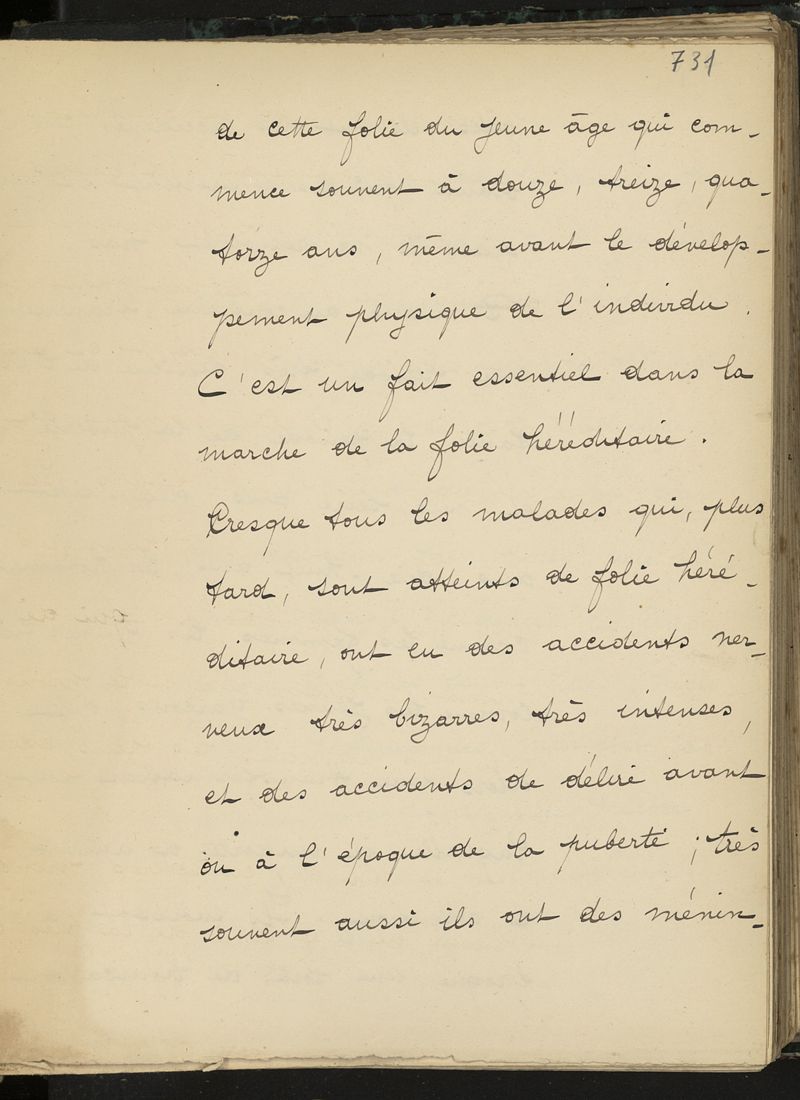 731
de cette folie du jeune âge qui com-
mence souvent à douze, treize, qua-
torze ans, même avant le dévelop-
pement physique de l'individu.
C'est un fait essentiel dans la
marche de la folie héréditaire.
Presque tous les malades qui, plus
tard, sont atteints de folie héré-
ditaire, ont eu des accidents ner-
veux très bizarres, très intenses,
et des accidents de délire avant
ou à l'époque de la puberté ; très
souvent aussi ils ont des ménin-